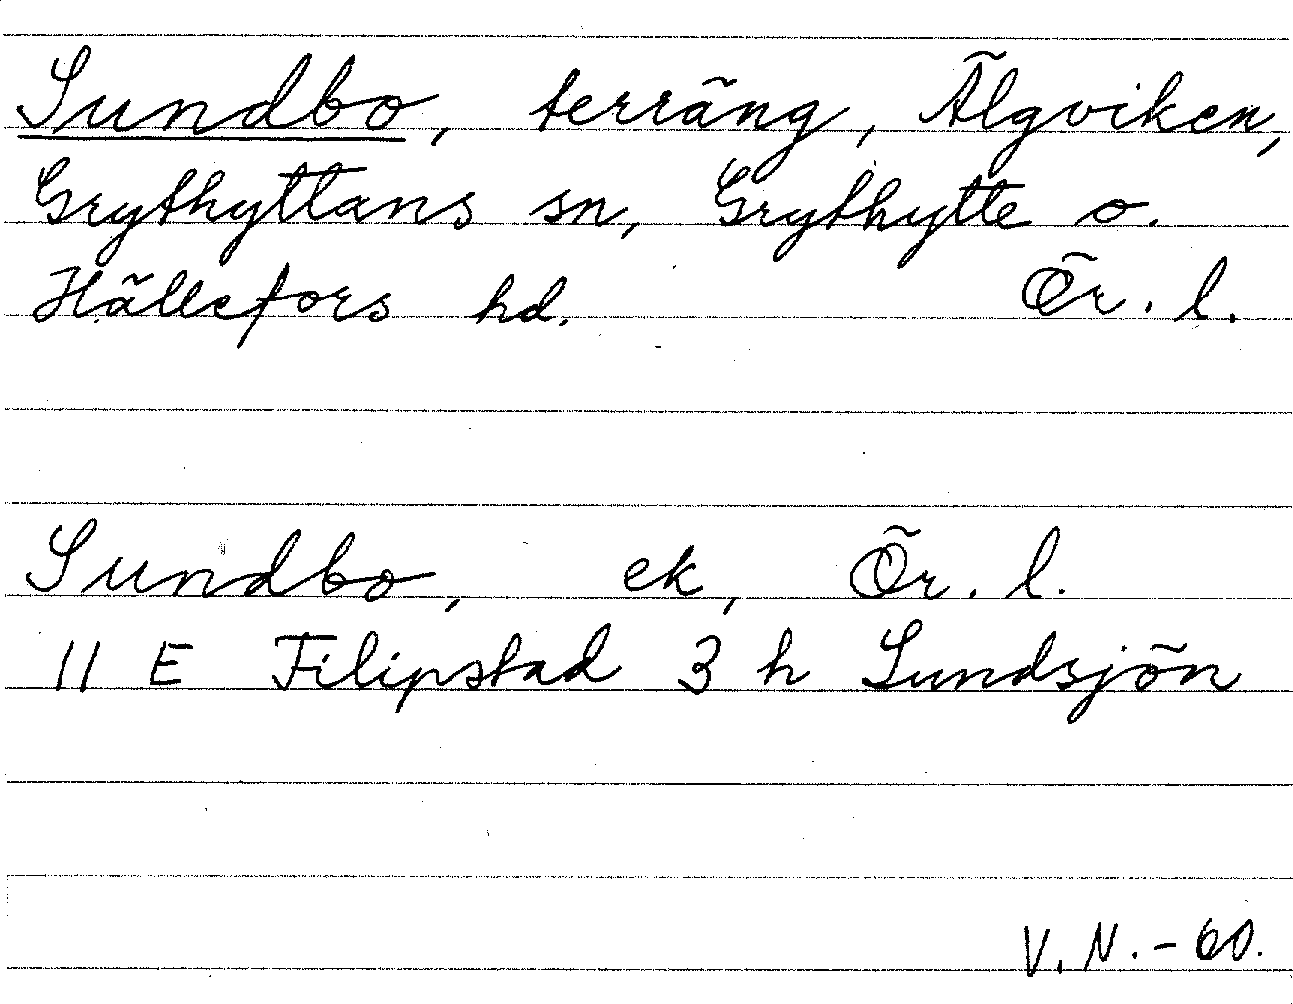 Sundbo, terräng, Älgviken,
Grythyttans sn, Grythytte o.
Hällefors hd. Ör. l.
Sundbo, ek, Ör. l.
11 E Filipstad 3 h Sundsjön
V. N. - 60.